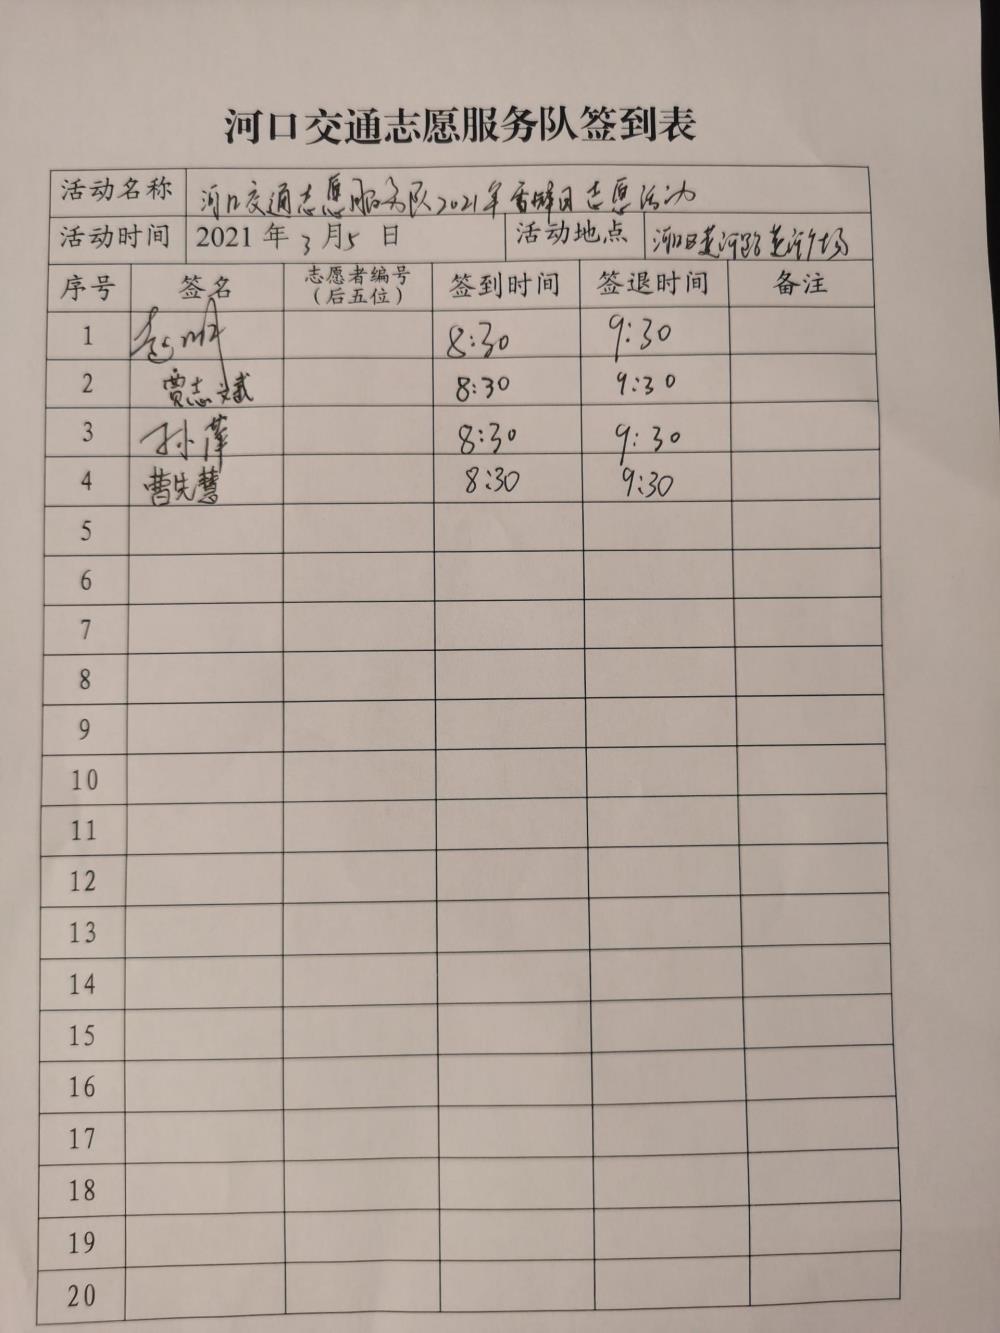 河口交通志愿服务队签到表
活动名称 河口交通志愿服务队2021年雷锋日志愿活动
活动时间 2021 年 3 月 5 日 活动地点 河口区黄河路黄河广场
序号 签名 志愿者编号（后五位） 签到时间 签退时间 备注
1 8:30 9:30
2 贾志斌 8:30 9:30
3 孙萍 8:30 9:30
4 曹先慧 8:30 9:30
5
6
7
8
9
10
11
12
13
14
15
16
17
18
19
20